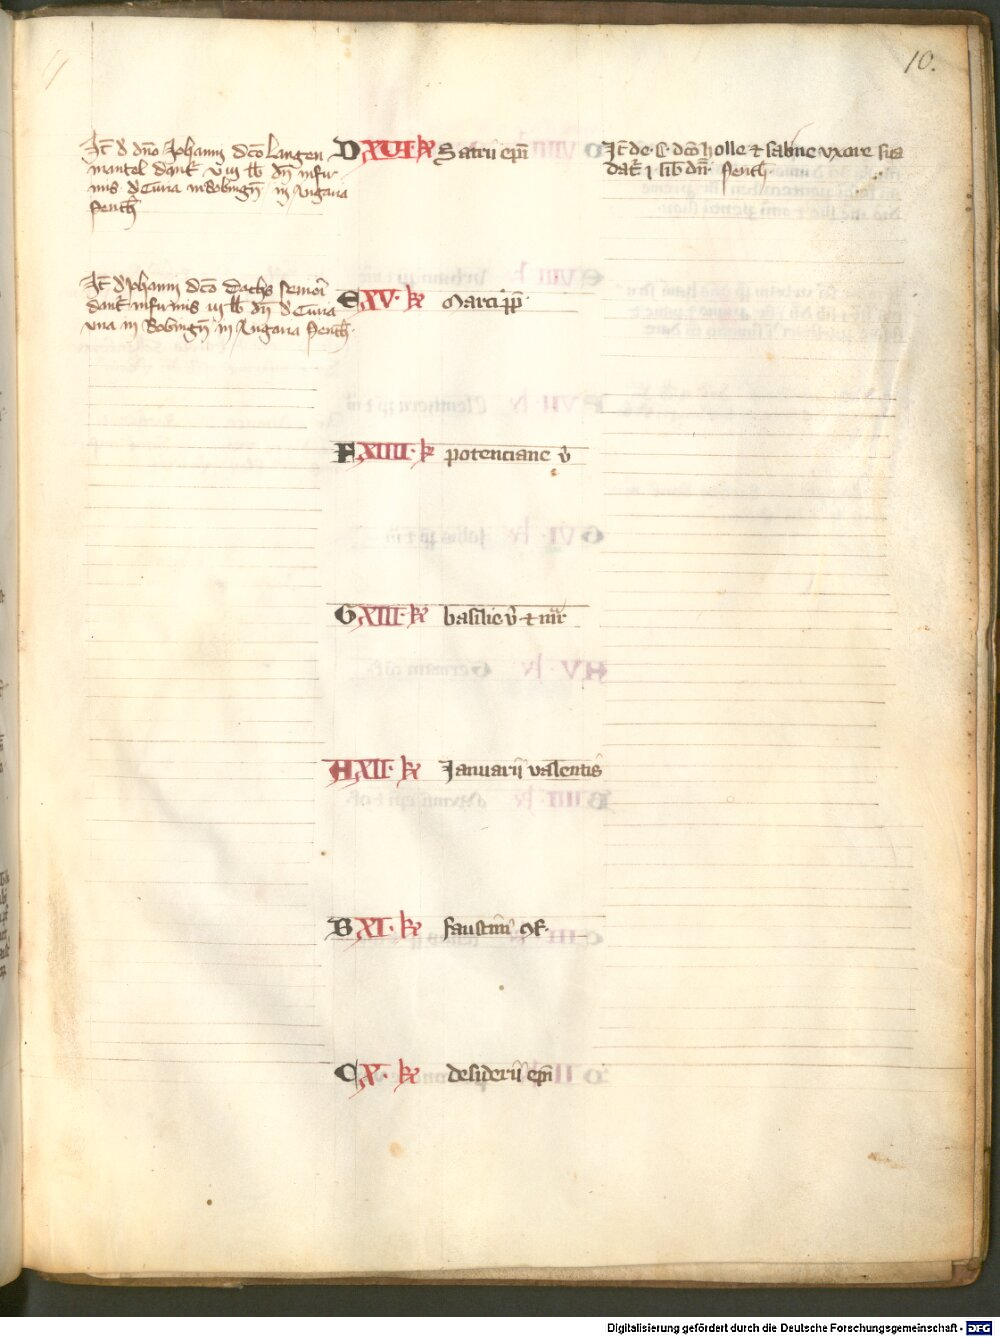 10.
It d dno Johanni dco Langen
mantel dant viii lb dn infir
mis d Curia in Bobingn in Angaria
Penth
D XVI kl Satrii epi
It de S. dco holle et sabine vxore sua
dat i lib dn Penth
It d Johanni dco Dachs seniori
dant infirmis iii lb dn d Curia
vna in Bobingn in Angaria Penth
E XV kl Marci pp
F XIIII kl potenciane v
G XIII kl basilie v et mr
H XII kl Januarii valentis
B XI kl faustini
C X kl desiderii epi
Digitalisierung gefördert durch die Deutsche Forschungsgemeinschaft - DFG